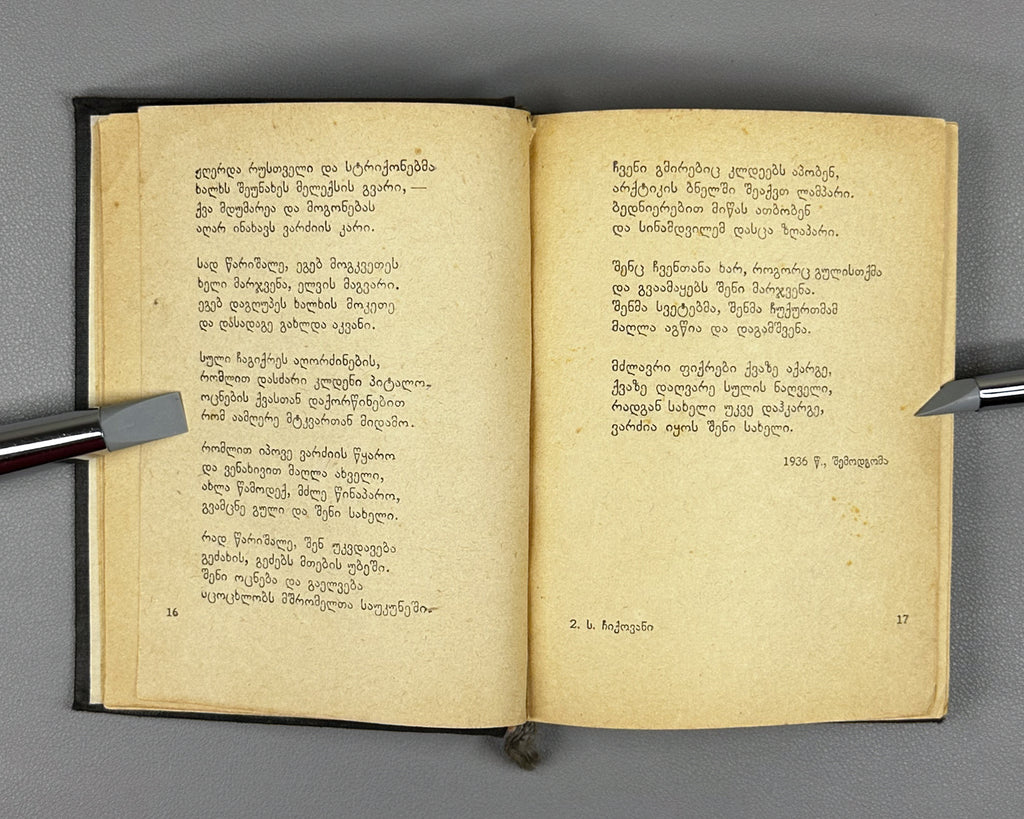 ჟღერდა რუსთველი და სტრიქონებმა
ხალხს შეუნახეს მელექსის გვარი, —
ქვა მდუმარეა და მოგონებას
აღარ ინახავს ვარძიის კარი.
სად წარიშალე, ეგებ მოგკვეთეს
ხელი მარჯვენა, ელვის მაგვარი.
ეგებ დაგღუპეს ხალხის მოკეთე
და დასადაგე გახლდა აკვანი.
სული ჩაგიქრეს აღორძინების,
რომლით დასძარი კლდენი პიტალო,
ოცნების ქვასთან დაქორწინებით
რომ აამღერე მტკვართან მიდამო.
რომლით იპოვე ვარძიის წყარო
და ვენახივით მაღლა ახველი,
ახლა წამოდექ, მძლე წინაპარო,
გვამცნე გული და შენი სახელი.
რად წარიშალე, შენ უკვდავება
გეძახის, გეძებს მთების უბეში.
შენი ოცნება და გაელვება
სცოცხლობს მშრომელთა საუკუნეში.
16
ჩვენი გმირებიც კლდეებს აპობენ,
არქტიკის ბნელში შეაქვთ ლამპარი.
ბედნიერებით მიწას ათბობენ
და სინამდვილემ დასცა ზღაპარი.
შენც ჩვენთანა ხარ, როგორც გულისთქმა
და გვაამაყებს შენი მარჯვენა.
შენმა სვეტებმა, შენმა ჩუქურთმამ
მაღლა აგწია და დაგამშვენა.
მძლავრი ფიქრები ქვაზე აქარგე,
ქვაზე დაღვარე სულის ნაღველი,
რადგან სახელი უკვე დაჰკარგე,
ვარძია იყოს შენი სახელი.
1936 წ., შემოდგომა
2. ს. ჩიქოვანი
17